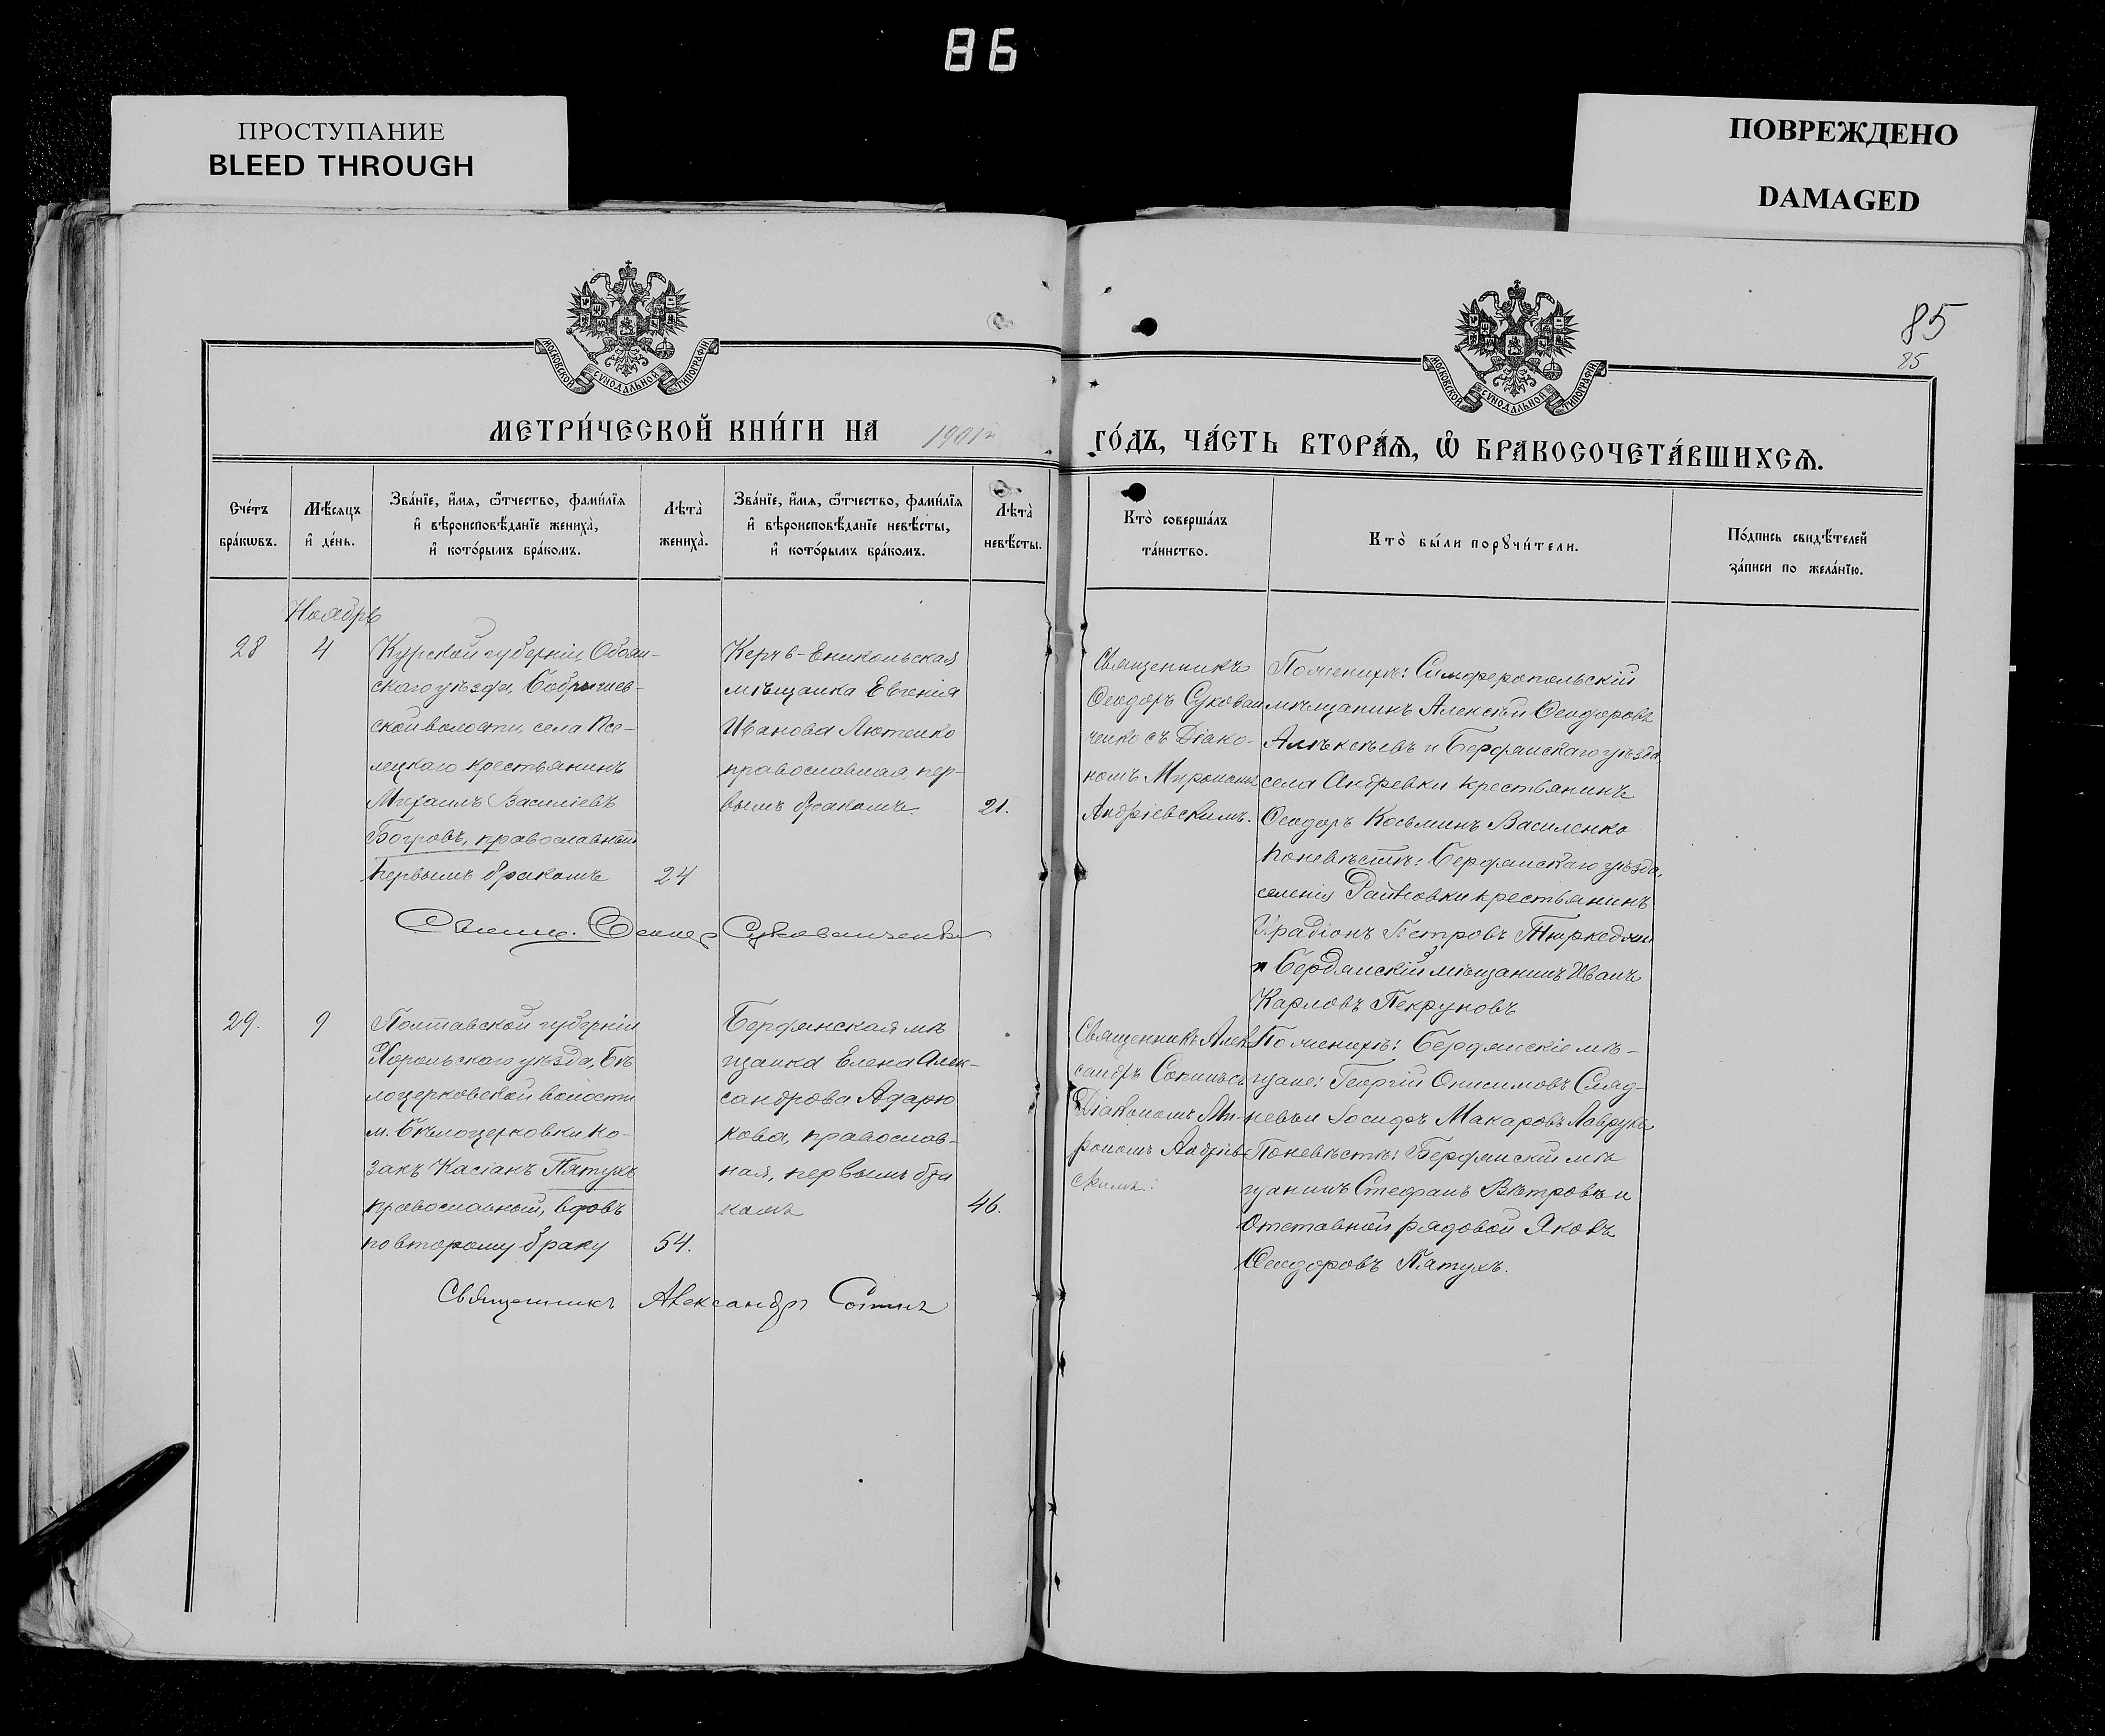 86
ПРОСТУПАНИЕ
BLEED THROUGH
ПОВРЕЖДЕНО
DAMAGED
85
85
МОСКОВСКОЙ СѴНОДАЛЬНОЙ ТИПОГРАФІИ
МОСКОВСКОЙ СѴНОДАЛЬНОЙ ТИПОГРАФІИ
МЕТРИ́ЧЕСКОЙ КНИ́ГИ НА 1901
ГО́ДЪ, ЧА́СТЬ ВТОРА́Ѧ, Ѽ БРАКОСОЧЕТА́ВШИХСѦ.
Сче́тъ
бра́кѡвъ.
Мѣ́сяцъ
и҆ де́нь.
Зва́нїе, и҆́мѧ, ѻ҆́тчество, фами́лїѧ
и҆ вѣроисповѣ́данїе жениха̀,
и҆ кото́рымъ бра́комъ.
Лѣта̀
жениха̀.
Зва́нїе, и҆́мѧ, ѻ҆́тчество, фами́лїѧ
и҆ вѣроисповѣ́данїе невѣ́сты,
и҆ кото́рымъ бра́комъ.
Лѣта̀
невѣ́сты.
Кто̀ соверша́лъ
та́инство.
Кто̀ бы́ли порꙋчи́тели.
По́дпись свидѣ́телей
за́писи по жела́нїю.
Ноябрь
28
4
Курской губерніи, Обоян-
скаго уѣзда,
ской волости, села Псе-
лецкаго крестьянинъ
Михаилъ Василіевъ
Богровъ, православный
первымъ бракомъ
24
Керчь-Еникольская
мѣщанка Евгенія
Иванова Лютенко
православная, пер-
вымъ бракомъ.
21.
Священникъ
Ѳеодоръ Сукован
ченко съ Діако-
номъ Мирономъ
Андріевскимъ.
По женихѣ: Симферопольскій
мѣщанинъ Алексѣй Ѳеодоровъ
Алѣксѣевъ и Бердянскаго уѣзда,
села Андревки крестьянинъ
Ѳеодоръ Косьминъ Василенко
по невѣстѣ: Бердянскаго уѣзда,
селенія Райновки крестьянинъ
Иродіонъ Петровъ
и Бердянскій мѣщанинъ Иванъ
Карловъ Пекруновъ
Свящ. Ѳеодор Сукованченко
29.
9
Полтавской губерніи
Хорольскаго уѣзда, Бѣ
лоцерковской волости
м. Бѣлоцерковки ко-
закъ Касіанъ Пятухъ
православный, вдовъ
по второму браку
54.
Бердянская мѣ
щанка Елена Алек-
сандрова Адарю
кова, православ-
ная, первымъ бра
комъ
46.
Священникъ Алек
сандръ Сопинъ съ
Діакономъ Ми-
рономъ Андріев
скимъ.
По женихѣ: Бердянскіе мѣ-
щане: Георгій Онисимовъ Слад-
невъ и Іосифъ Макаровъ Лаврукъ
По невѣстѣ: Бердянскій мѣ
щанинъ Стефанъ Вѣтровъ и
Отставной рядовой Яковъ
Ѳеодоровъ Пятухъ.
Священникъ Александръ Сопинъ